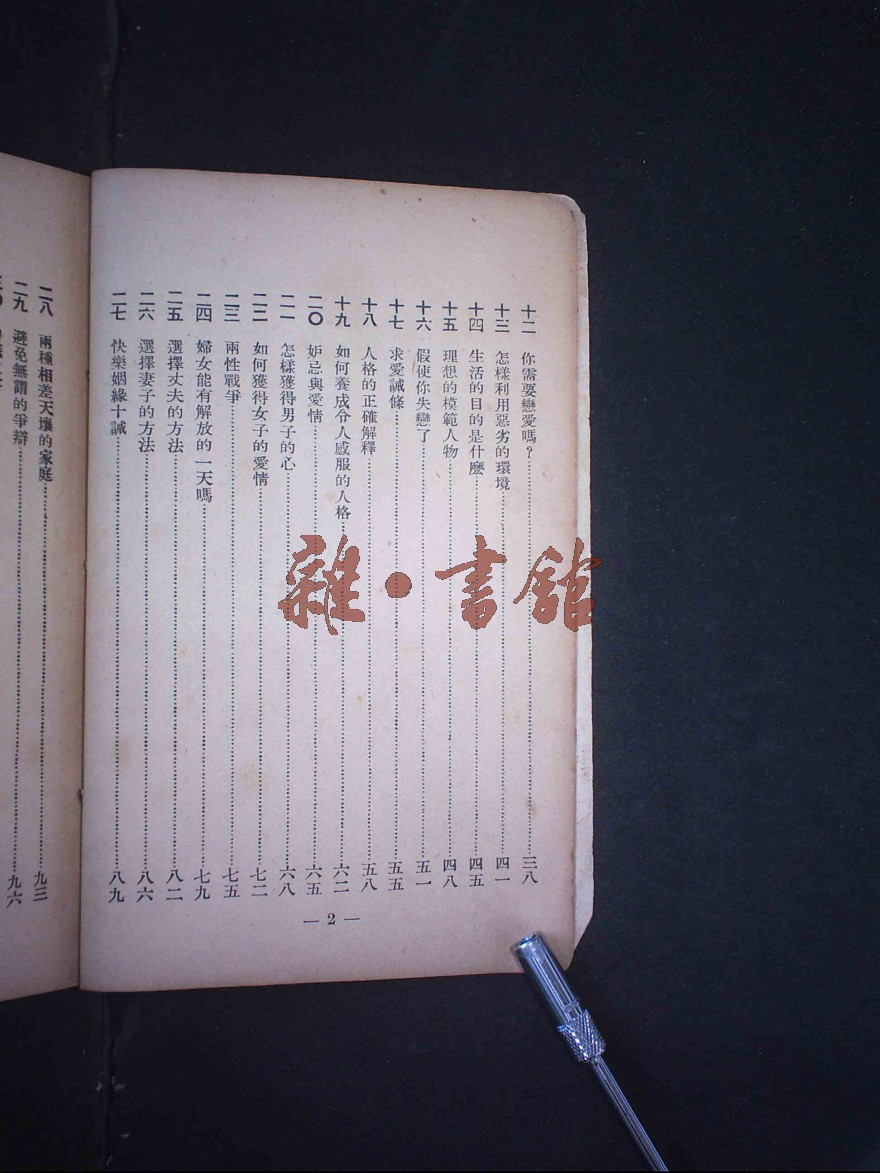 十二 你需要戀愛嗎？……三八
十三 怎樣利用惡劣的環境……四一
十四 生活的目的是什麽……四五
十五 理想的模範人物……四八
十六 假使你失戀了……五一
十七 求愛誡條……五五
十八 人格的正確解釋……五八
十九 如何養成令人感服的人格……六二
二〇 妒忌與愛情……六五
二一 怎樣獲得男子的心……六八
二二 如何獲得女子的愛情……七二
二三 兩性戰爭……七五
二四 婦女能有解放的一天嗎……七九
二五 選擇丈夫的方法……八二
二六 選擇妻子的方法……八六
二七 快樂姻緣十誡……八九
— 2 —
二八 兩種相差天壤的家庭……九三
二九 避免無謂的爭辯……九六
三〇
雜·書館